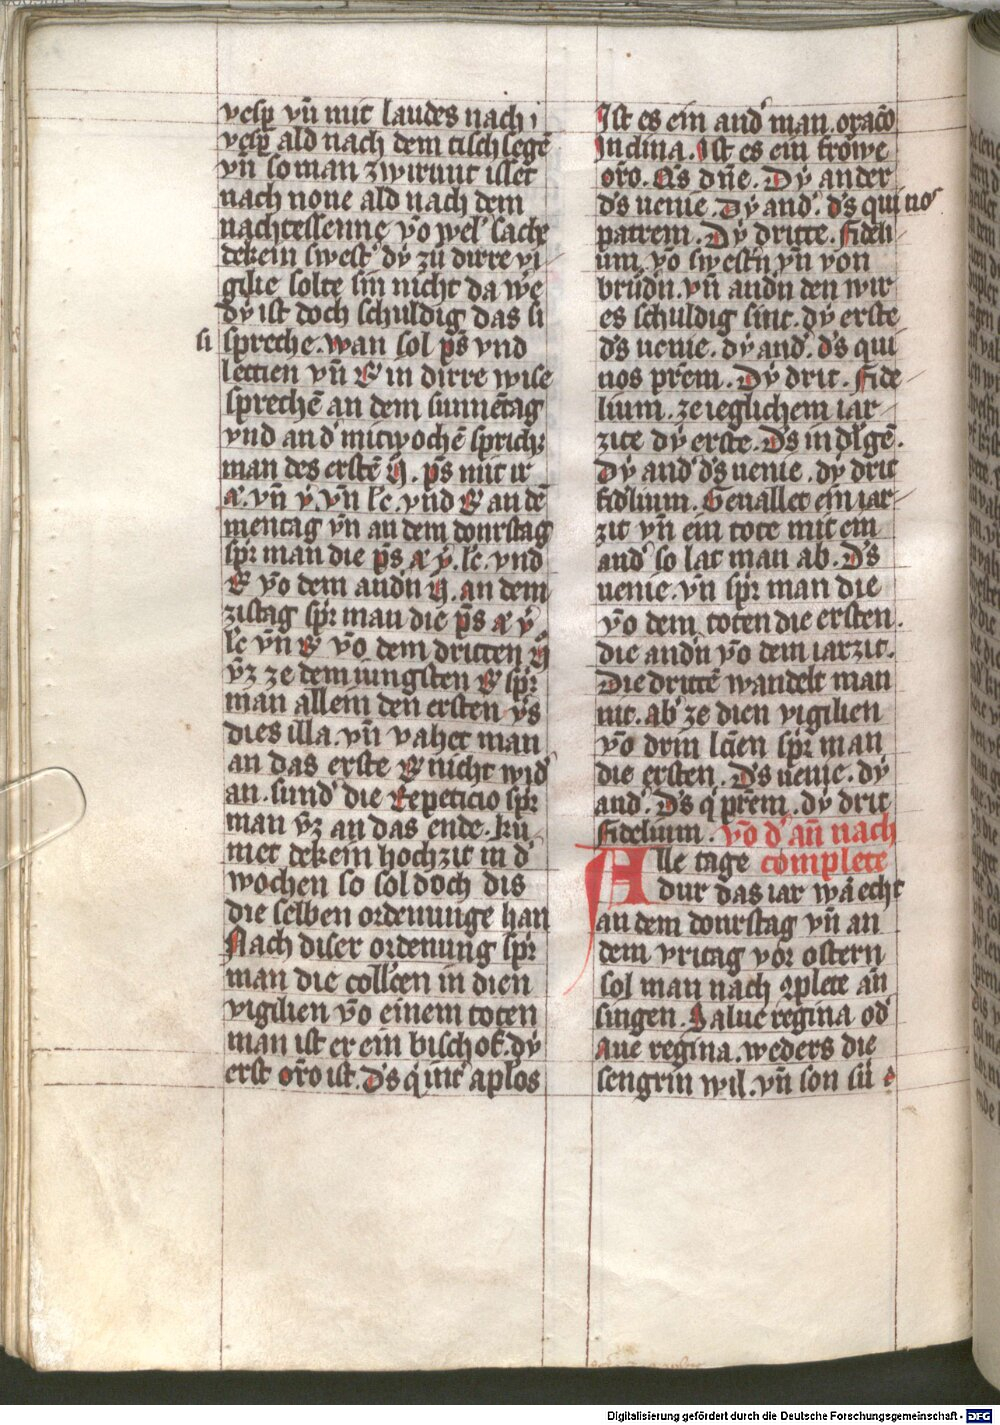 vesp vn̄ mit laudes nach i
vesp ald nach dem tisch segē
vn̄ so man zwirunt isset
nach none ald nach dem
nachtessenne vō wel' sache
dekein swest' dÿ zu dirre vi
gilie solte sin nicht da we
dÿ ist doch schuldig das si
si spreche. wan sol ps vnd
lectien vn̄ R in dirre wise
sprechē an dem sunnētag
vnd an d' mitwochē sprich
man des erstē N. ps mit ir
a. vn̄ v. vn̄ lc. vnd R an dē
mentag vn̄ an dem donrstag
spr man die ps a v. lc. vnd
R vō dem andn N. an dem
zistag spr man die ps a v
lc vn̄ R vō dem dritten N
vz ze dem iungsten R spr
man allein den ersten vs
dies illa. vn̄ vahet man
an das erste R nicht wid'
an. sund' die Repeticio spr
man vz an das ende. ku
met dekein hochzit in d'
wochen so sol doch dis
die selben ordenunge han
Nach diser ordenung spr
man die collcen in dien
vigilien vō einem toten
man ist er ein bischof. dÿ
erst oro ist. Ds q int aplos
Ist es ein and' man. oracō
Inclina. Ist es ein frowe
oro. Qs dne. Dÿ ander
ds uenie. Dÿ and'. ds qui nos
patrem. Dÿ dritte. Fideli
um. vō swestn vn̄ von
brudn. vn̄ andn den wir
es schuldig sint. dÿ erste
ds uenie. dÿ and'. ds qui
nos prem. Dÿ drit. Fide
lium. ze ieglichem iar
zite dÿ erste. Ds indlgē.
Dÿ and' ds uenie. dÿ drit
fidlium. Geuallet ein iar
zit vn̄ ein tote mit ein
and' so lat man ab. Ds
uenie. vn̄ spr man die
vō dem toten die ersten.
die andn vō dem iarzit.
Die drittē wandelt man
nit. ab' ze dien vigilien
vō drin lcien spr man
die ersten. Ds uenie. dÿ
and'. Ds q prem. dÿ drit
Fidelium. vō d' an̄ nach
Alle tage complete
dur das iar wā echt
an dem donrstag vn̄ an
dem vritag vor ostern
sol man nach 9plete an̄
singen. Salue regina od'
Aue regina. weders die
sengrin wil. vn̄ son sii e
Digitalisierung gefördert durch die Deutsche Forschungsgemeinschaft - DFG